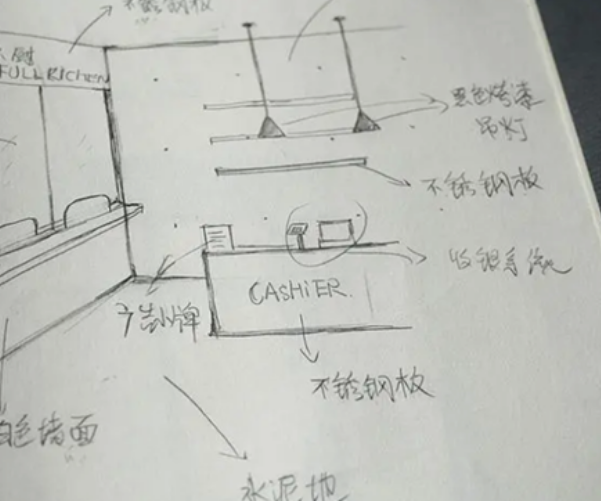 不锈钢板
FULL KICHEN
黑色烤漆
吊灯
不锈钢板
收银系统
CASHIER
广告小牌
不锈钢板
白色墙面
水泥地